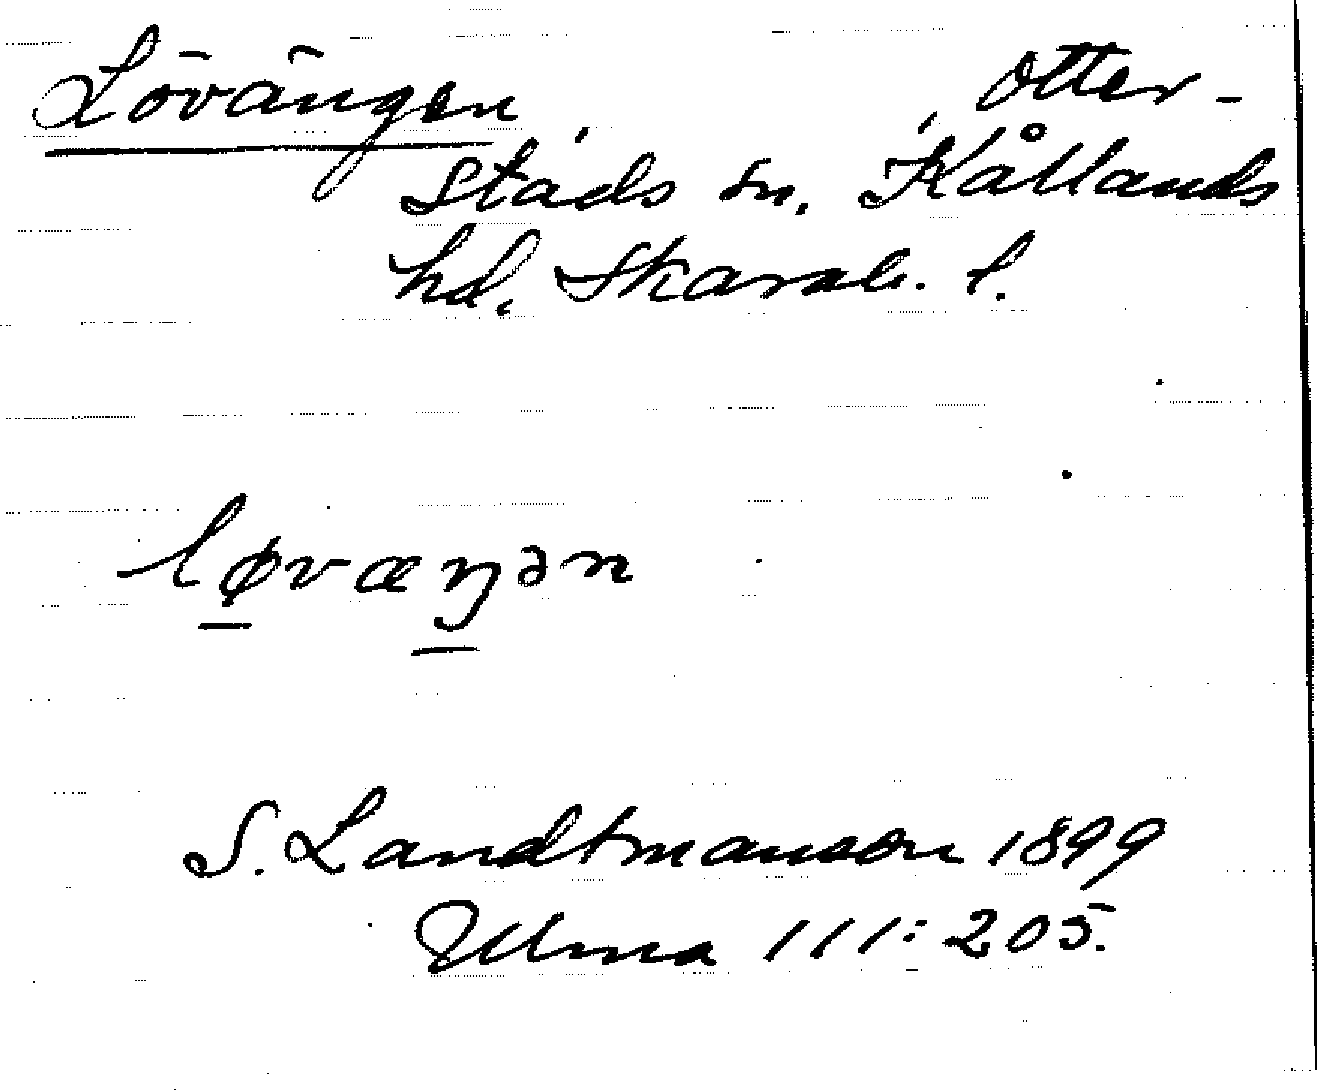 Lövängen, Otter-
stads sn, Kållands
hd. Skarab. l.
løvæŋən
S. Landtmanson 1899
Ulma 111:205.